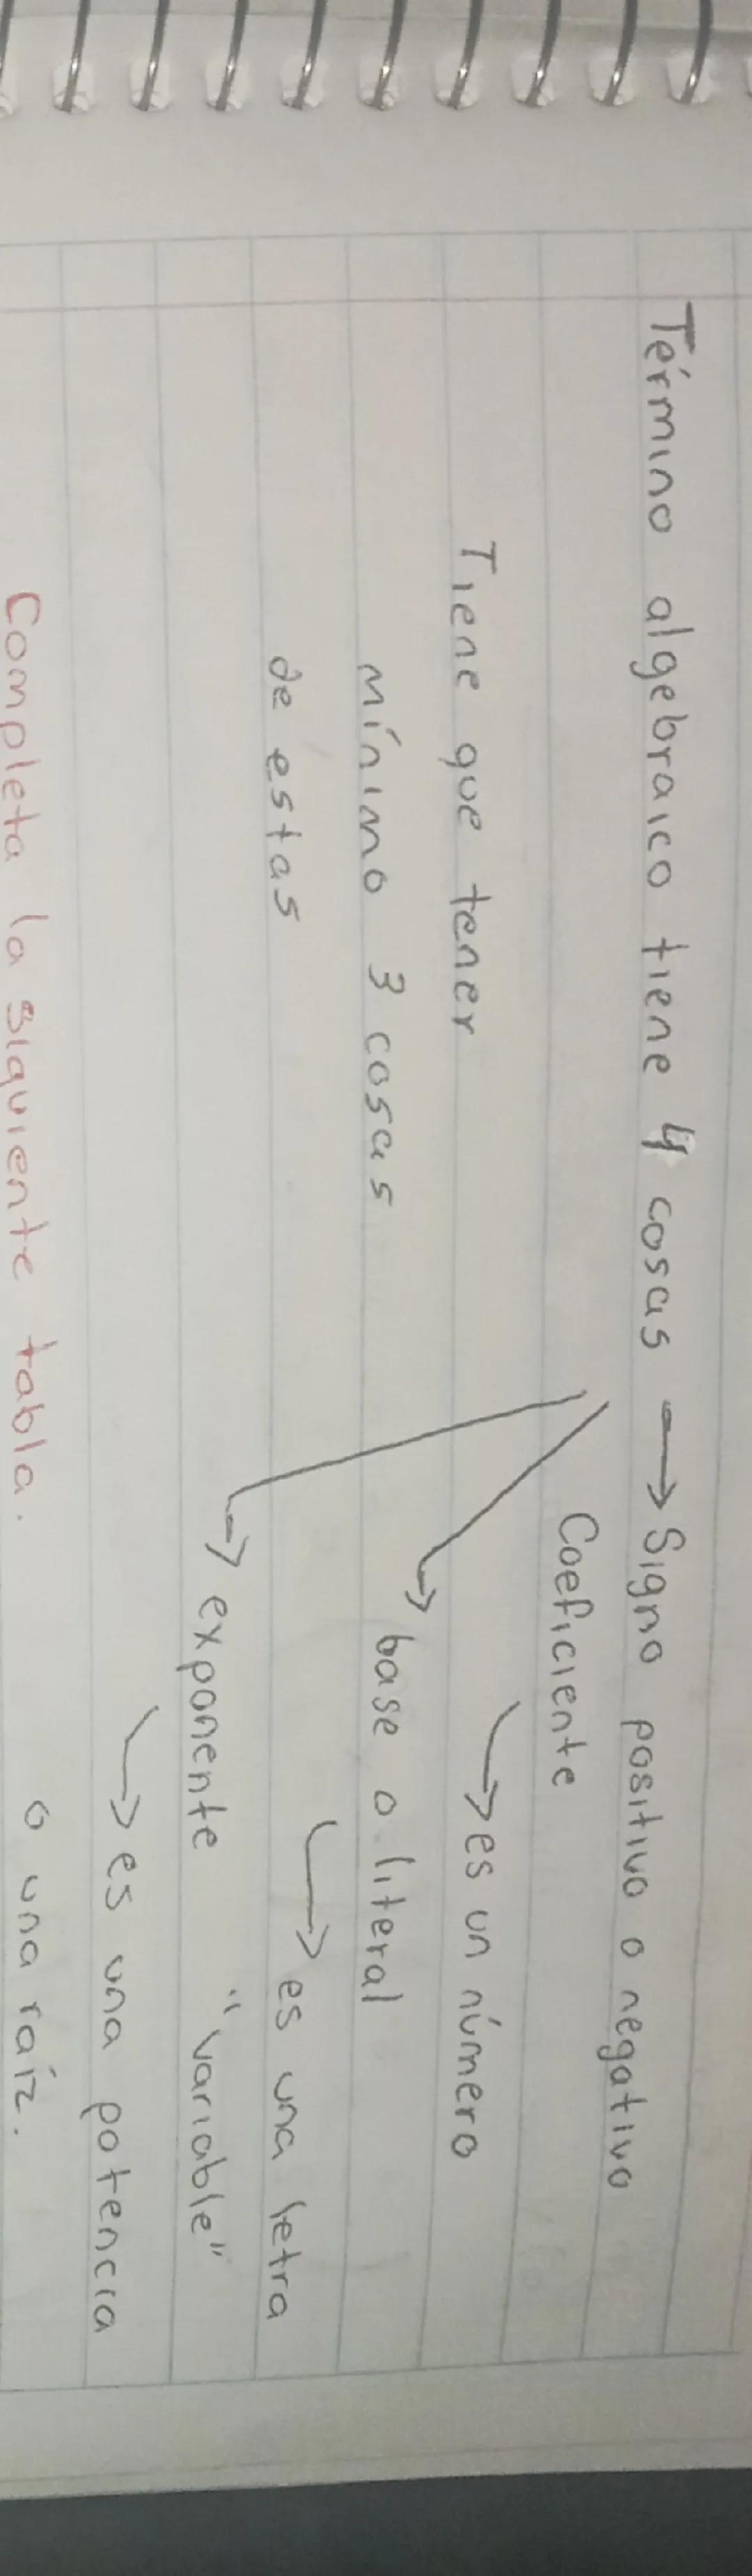 Término algebraico tiene 4 cosas → Signo positivo o negativo
Coeficiente
Tiene que tener → es un número
mínimo 3 cosas → base o literal
de estas → es una letra
→ exponente "variable"
→ es una potencia
Completa la siguiente tabla. o una raíz.